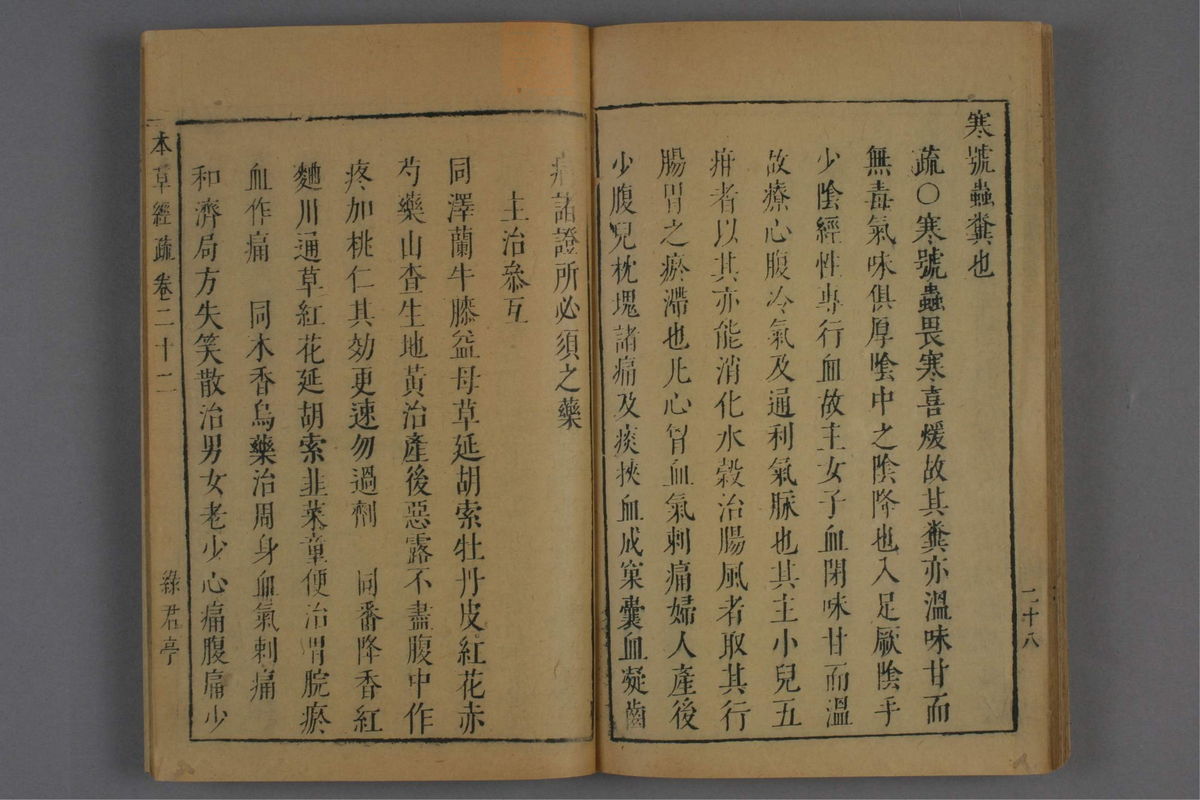 寒號蟲糞也
疏○寒號蟲畏寒喜煖故其糞亦溫味甘而
無毒氣味俱厚陰中之陰降也入足厥陰手
少陰經性專行血故主女子血閉味甘而溫
故療心腹冷氣及通利氣脉也其主小兒五
疳者以其亦能消化水穀治腸風者取其行
腸胃之瘀滯也凡心胷血氣刺痛婦人產後
少腹兒枕塊諸痛及痰挾血成窠囊血凝齒
痛諸證所必須之藥
主治參互
同澤蘭牛膝益母草延胡索牡丹皮紅花赤
芍藥山查生地黃治產後惡露不盡腹中作
疼加桃仁其効更速勿過劑 同番降香紅
麯川通草紅花延胡索韭菜童便治胃脘瘀
血作痛 同木香烏藥治周身血氣刺痛
和濟局方失笑散治男女老少心痛腹痛少
本草經疏 卷二十二
綠君亭